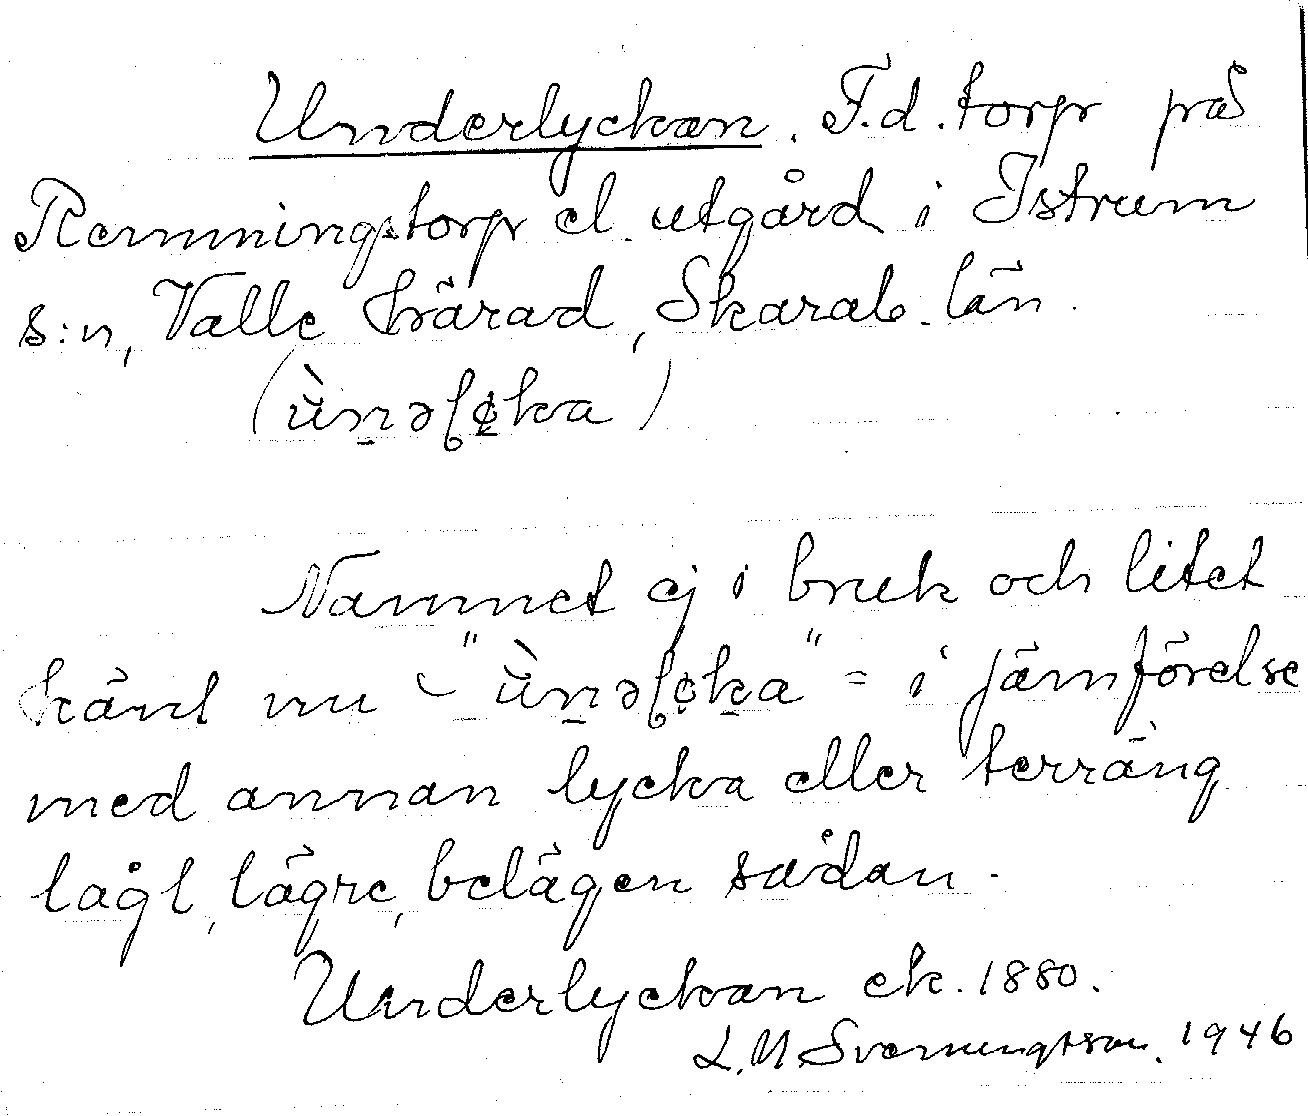 Underlyckan. F.d. torp på
Remmingstorp el. utgård i Istrum
s:n, Valle härad, Skarab. län.
(ù̱nəɭø̣ka)
Namnet ej i bruk och litet
känt nu – "ù̱nəɭø̣ka" = i jämförelse
med annan lycka eller terräng
lågt, lägre, belägen sådan.
Underlyckan ek. 1880.
L. M. Svenungsson. 1946